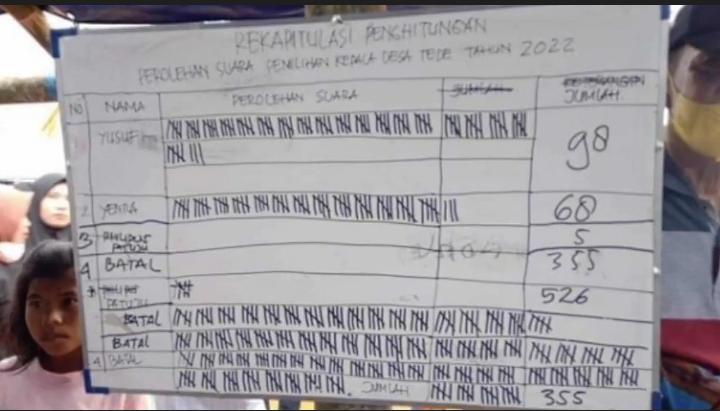 REKAPITULASI PENGHITUNGAN
PEROLEHAN SUARA PEMILIHAN KEPALA DESA TEDE TAHUN 2022
NO NAMA PEROLEHAN SUARA JUMLAH JUMLAH
YUSUF 98
2 YENRA 68
3 PATUJU 5
4 BATAL 355
PATUJU 526
BATAL
BATAL
4 BATAL
JUMLAH 355